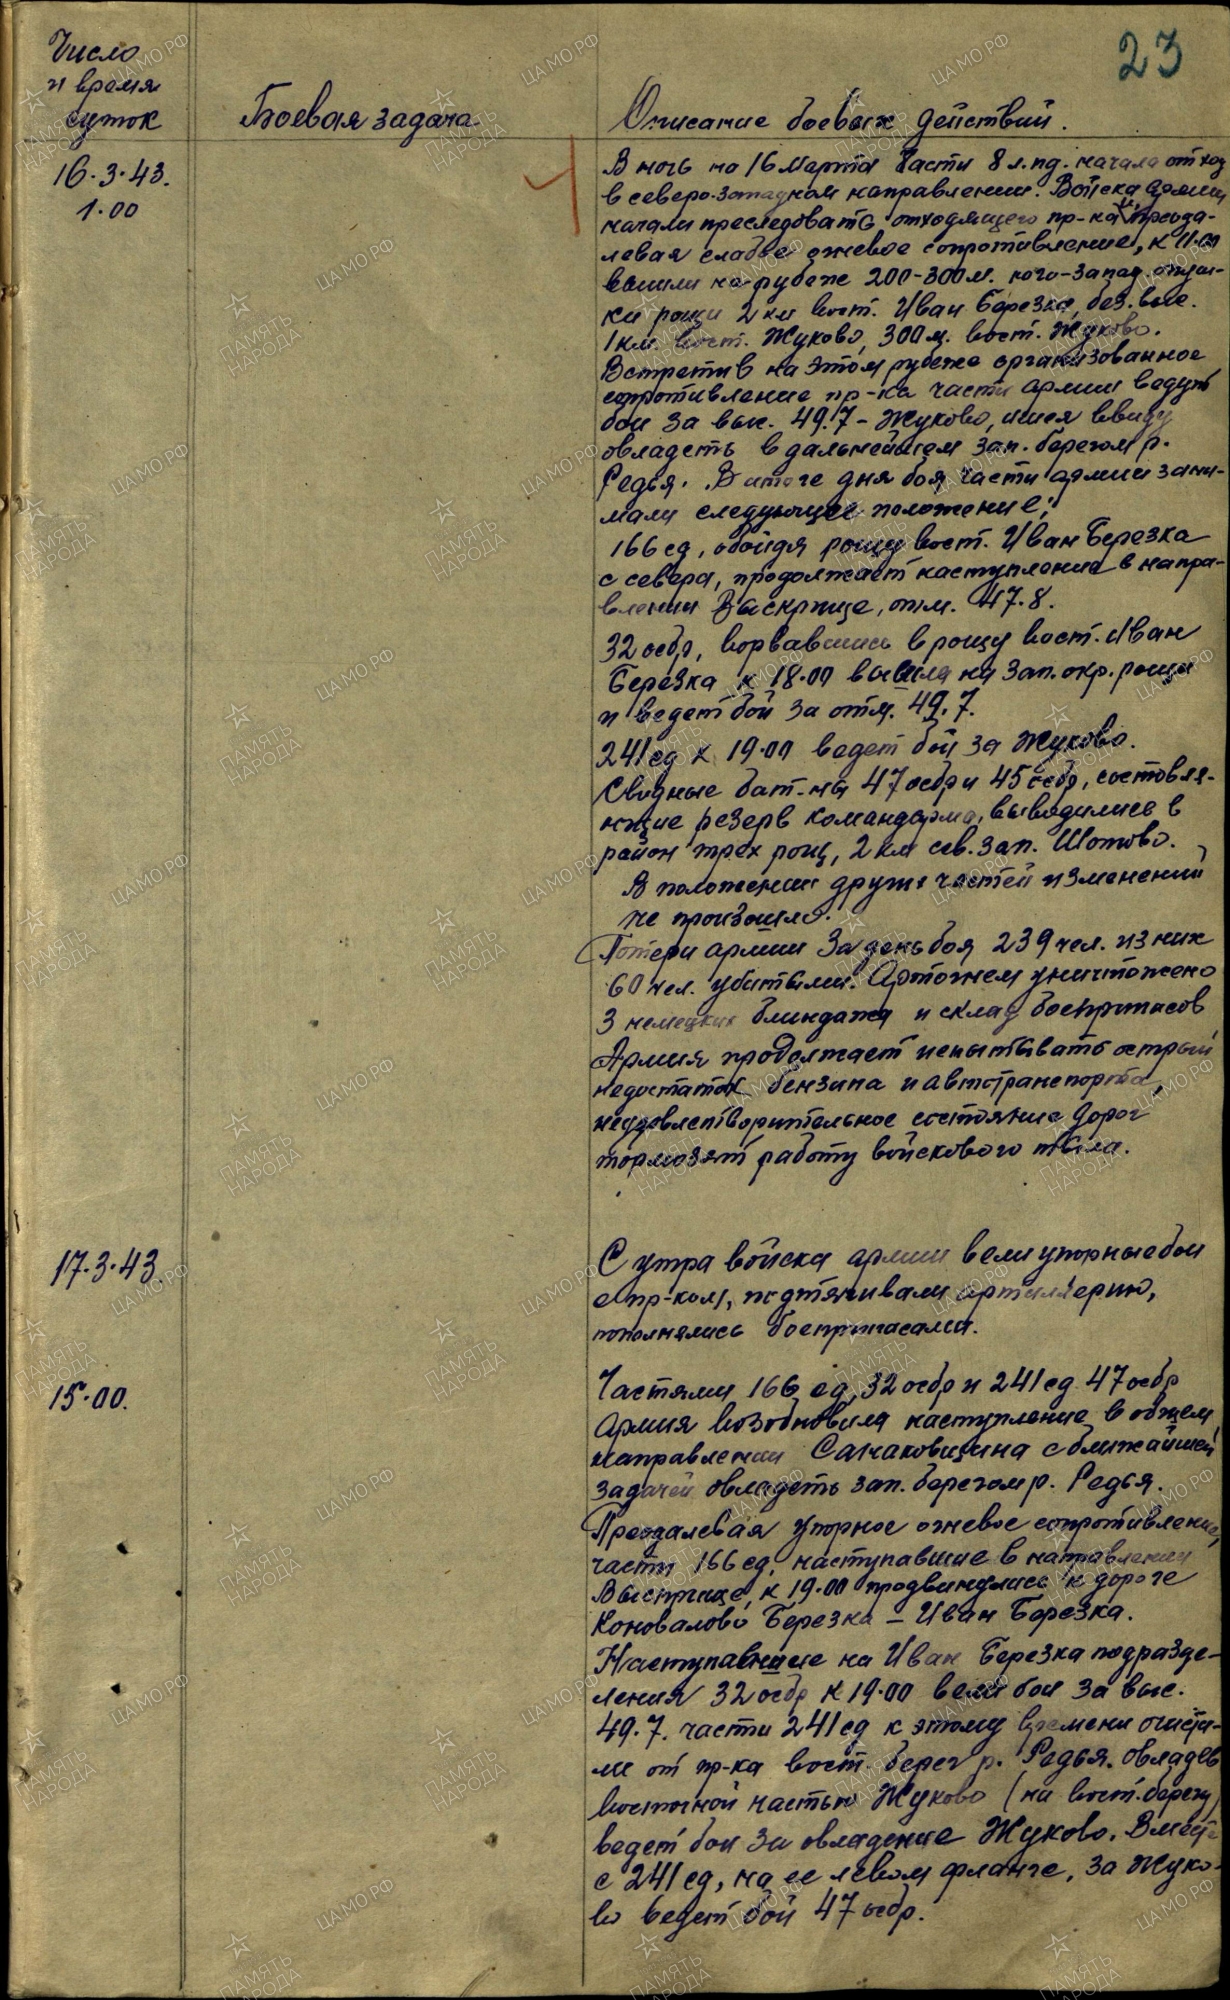 23
Число
и время
суток
Боевая задача.
Описание боевых действий.
16.3.43.
1.00
В ночь на 16 Марта части 8 л.пд. начала отход
в северо-западном направлении. Войска армии
начали преследовать отходящего пр-ка и, преода-
левая слабое огневое сопротивление, к 11.00
вышли на рубеже 200-300 м. юго-запад. опуш-
ки рощи 2 км вост. Иван Березка, без. выс.
1 км. вост. Жуково, 300 м. вост. Жуково.
Встретив на этом рубеже организованное
сопротивление пр-ка части армии ведут
бои за выс. 49.7 - Жуково, имея ввиду
овладеть в дальнейшем зап. берегом р.
Редья. В итоге дня боя части армии зани-
мали следующее положение:
166 сд, обойдя рощу вост. Иван Березка
с севера, продолжает наступление в напра-
влении Выскрище, отм. 47.8.
32 осбр, ворвавшись в рощу вост. Иван
Березка к 18.00 вышла на зап. окр. рощи
и ведет бой за отм. 49.7.
241 сд к 19.00 ведет бой за Жуково.
Сводные бат-ны 47 осбр и 45 осбр, составля-
ющие резерв командарма, выводились в
район трех рощ, 2 км сев. зап. Шотово.
В положении других частей изменений
не произошло.
Потери армии за день боя 239 чел. из них
60 чел. убитыми. Артогнем уничтожено
3 немецких блиндажа и склад боеприпасов
Армия продолжает испытывать острый
недостаток бензина и автотранспорта,
неудовлетворительное состояние дорог
тормозят работу войскового тыла.
17.3.43.
С утра войска армии вели упорные бои
с пр-ком, подтягивали артиллерию,
пополнялись боеприпасами.
15.00.
Частями 166 сд, 32 осбр и 241 сд 47 осбр
армия возобновила наступление в общем
направлении Санаковщина с ближайшей
задачей овладеть зап. берегом р. Редья.
Преодалевая упорное огневое сопротивление,
части 166 сд, наступавшие в направлении
к 19.00 продвинулись к дороге
Коновалово Березка - Иван Березка.
Наступавшие на Иван Березка подразде-
ления 32 осбр к 19.00 вели бои за выс.
49.7. части 241 сд к этому времени очисти-
ли от пр-ка вост. берег р. Редья. овладев
восточной частью Жуково (на вост. берегу)
ведет бои за овладение Жуково. Вместе
с 241 сд, на ее левом фланге, за Жуко-
во ведет бой 47 осбр.